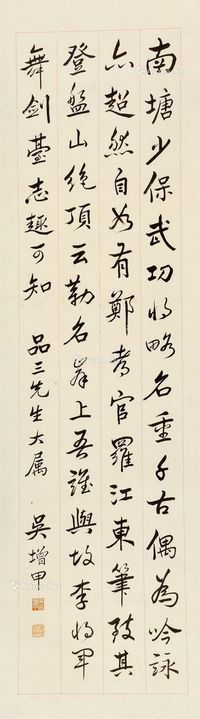 南塘少保武功将略名重千古偶為吟詠
亦超然自如有鄭考官羅江東筆致其
登盤山絶頂云勒名峯上吾誰與故李将軍
舞剑臺志趣可知 品三先生大属 吴增甲